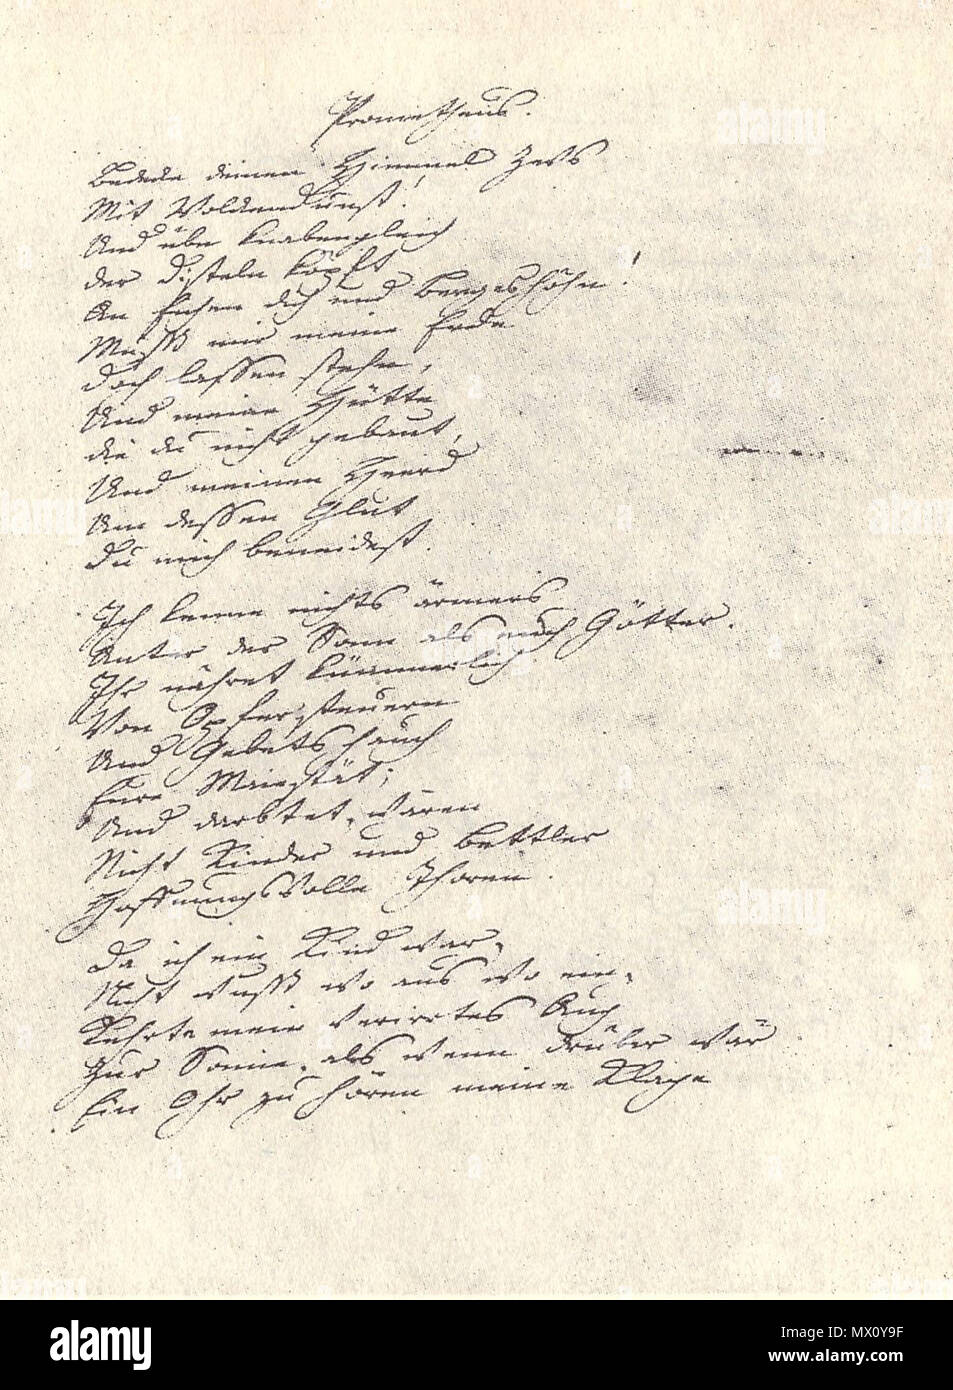 Prometheus.
Bedecke deinen Himmel Zevs
Mit Wolkendunst!
Und übe Knabengleich
der Disteln köpft
An Eichen dich und Bergeshöhn!
Musst mir meine Erde
doch lassen stehn,
Und meine Hütte
die du nicht gebaut,
Und meinen Heerd
Um dessen Glut
Du mich beneidest.
Ich kenne nichts ärmers
Unter der Sonn als euch Götter.
Ihr nähret kümmerlich
Von Opfersteuern
Und Gebetshauch
Eure Maiestät;
Und darbtet, wären
Nicht Kinder und Bettler
Hoffnungsvolle Thoren.
Da ich ein Kind war,
Nicht wusst wo aus wo ein,
Kehrte mein verirrtes Aug
Zur Sonne, als wenn drüber wär
Ein Ohr zu hören meine Klage
alamy
Image ID: MX0Y9F
www.alamy.com